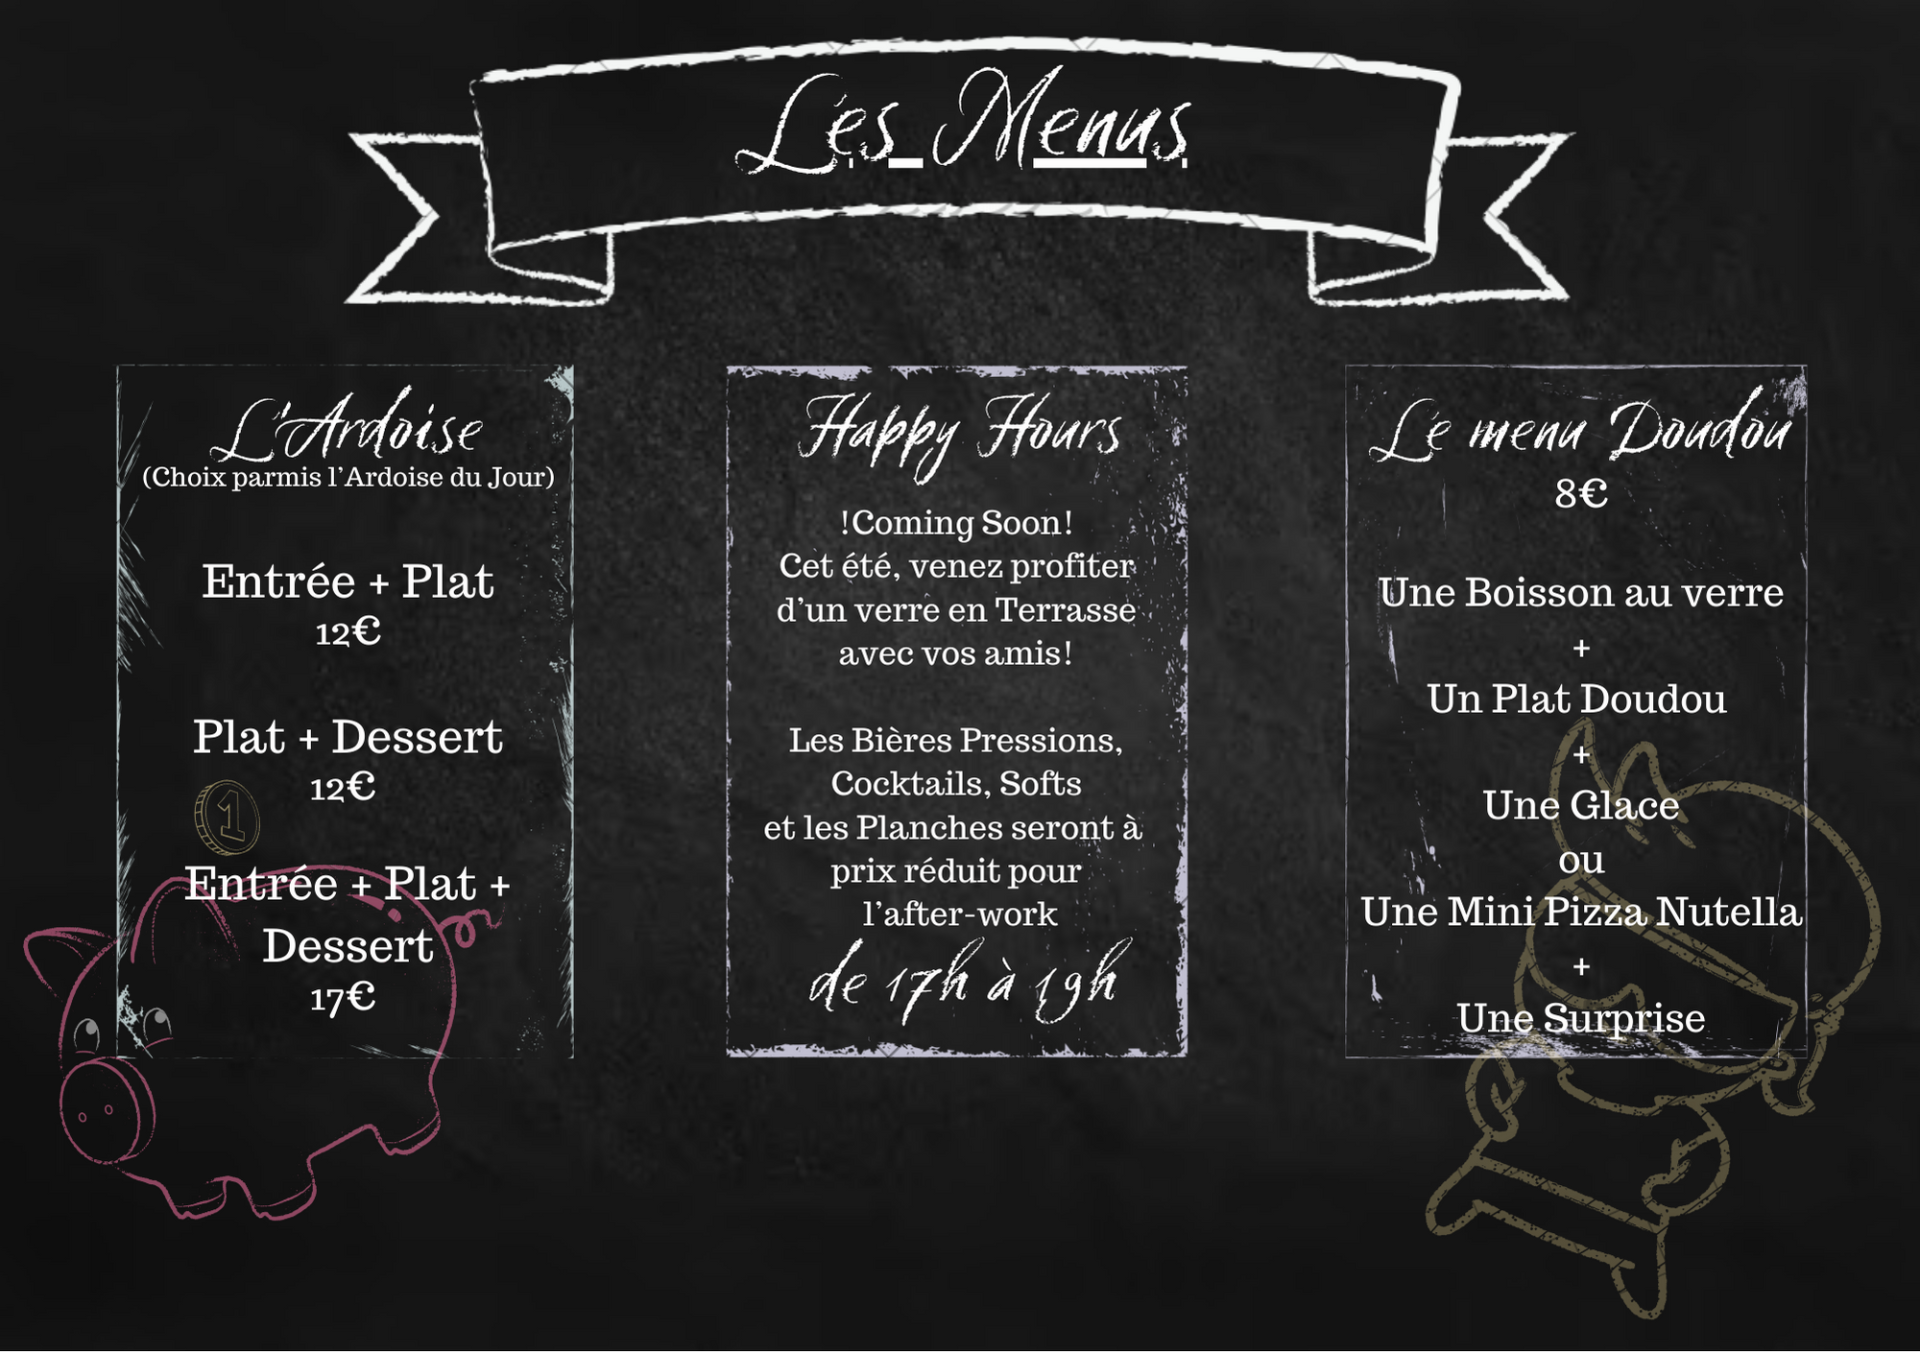 Les Menus
L'Ardoise
(Choix parmis l'Ardoise du Jour)
Entrée + Plat
12€
Plat + Dessert
12€
1
Entrée + Plat +
Dessert
17€
Happy Hours
!Coming Soon!
Cet été, venez profiter
d'un verre en Terrasse
avec vos amis!
Les Bières Pressions,
Cocktails, Softs
et les Planches seront à
prix réduit pour
l'after-work
de 17h à 19h
Le menu Doudou
8€
Une Boisson au verre
+
Un Plat Doudou
+
Une Glace
ou
Une Mini Pizza Nutella
+
Une Surprise